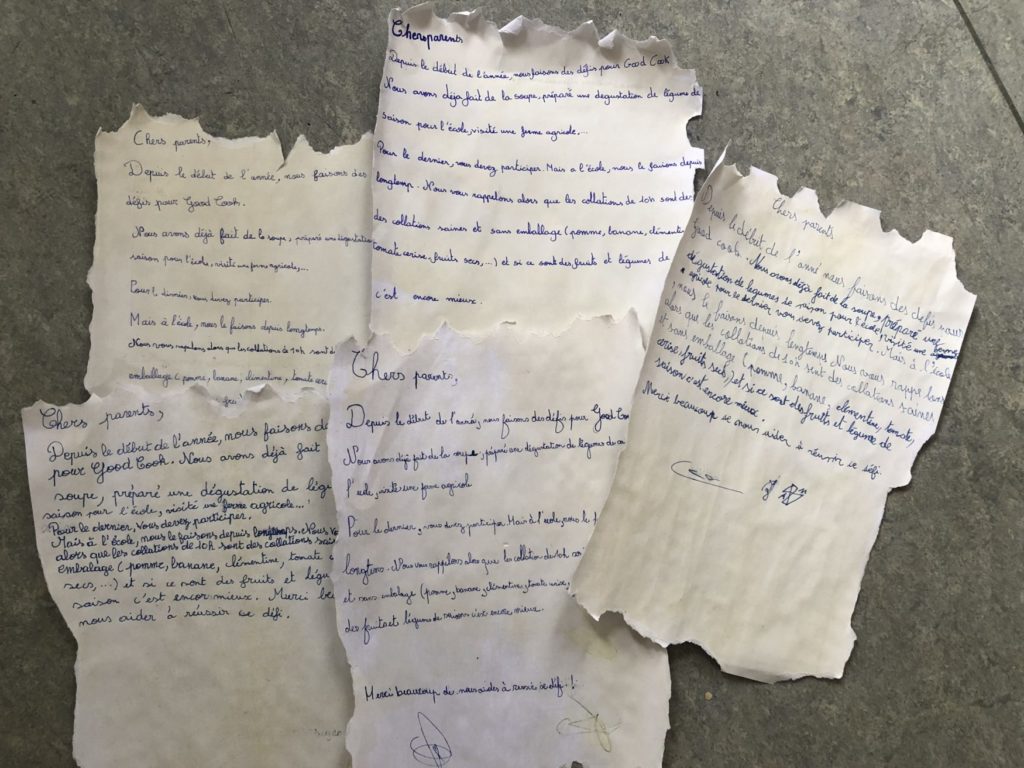 Chers parents
Depuis le début de l'année, nous faisons des défis pour Good Cook
Nous avons déja fait de la soupe, préparé une degustation de légume de
saison pour l'école, visité une ferme agricole,...
Pour le dernier, vous devez participer. Mais a l'école, nous le faisons depuis
longtemp. Nous vous rappelons alors que les collations de 10h sont des
des collations saines et sans emballage (pomme, banane, clémentine
tomate cerise, fruits secs,...) et si ce sont des fruits et légumes de
c'est encore mieux.
Chers parents,
Depuis le début de l'année, nous faisons des
défis pour Good Cook.
Nous avons déjà fait de la soupe, préparé une dégustation
saison pour l'école, visité une ferme agricole,...
Pour le dernier, vous devez participer.
Mais à l'école, nous le faisons depuis longtemps.
Nous vous rapelons alors que les collations de 10h sont d
emballage (pomme, banane, clémentine, tomate cere
Chers parents
Depuis le début de l'anné nous faisons des défis pour
good cook. Nous avons déjà fait de la soupe, préparé une
degustation de legumes de saison pour l'école, visité une ferme
agricole pour le dernier vous devez participer. Mais à l'école
nous le faisons depuis longtemps Nous vous rappelons
alors que les collations de 10h sont des collations saines
et sans emballage (pomme, banane, clémentine, tomate,
cerise, fruits secs) et si ce sont des fruits et légume de
saison c'est encore mieux.
Merci beaucoup de nous aider à réussir ce défi.
Chers parents,
Depuis le début de l'année, nous faisons d
pour Good Cook. Nous avons déjà fait
soupe, préparé une dégustation de légu
saison pour l'école, visité une ferme agricole...
Pour le dernier, vous devez participer.
Mais à l'école, nous le faisons depuis longtemps. Nous v
alors que les collations de 10h sont des collations sai
embalage (pomme, banane, clémentine, tomate
secs,...) et si ce sont des fruits et légu
saison c'est encor mieux. Merci be
nous aider à réussir ce défi.
Chers parents,
Depuis le début de l'année, nous faisons des défis pour Good Coo
Nous avons déjà fait de la soupe, préparé une dégustation de légumes de
l'école, visité une ferme agricole
Pour le dernier, vous devez participer. Mais à l'école, nous le f
longtems. Nous vous rappelons alors que les collation de 10h
et sans embalage (pomme, banane, clémentine, tomate cerise,
des fruits et légumes de saisons c'est encore mieux.
Merci beaucoup de nous aider à réussir ce défi!